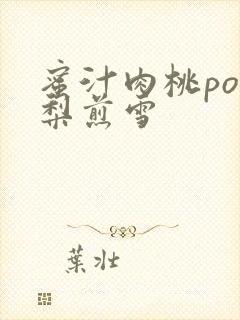 蜜汁肉桃po
梨煎雪
葉壮